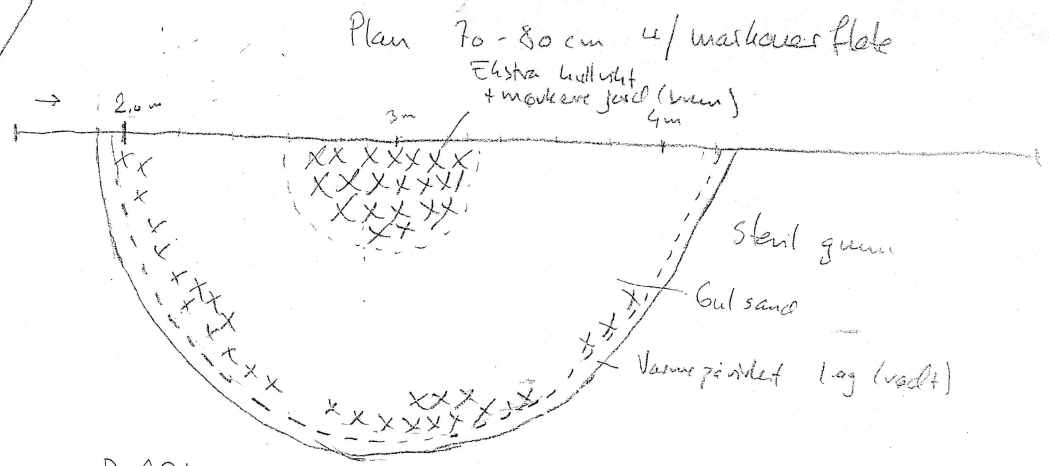 Plan 70-80 cm u/ markoverflate
Ekstra kullrikt
+ mørkere jord (brun)
2,0 m
3m
4m
Steril grunn
Gul sand
Varmepåvirket lag (rødt)